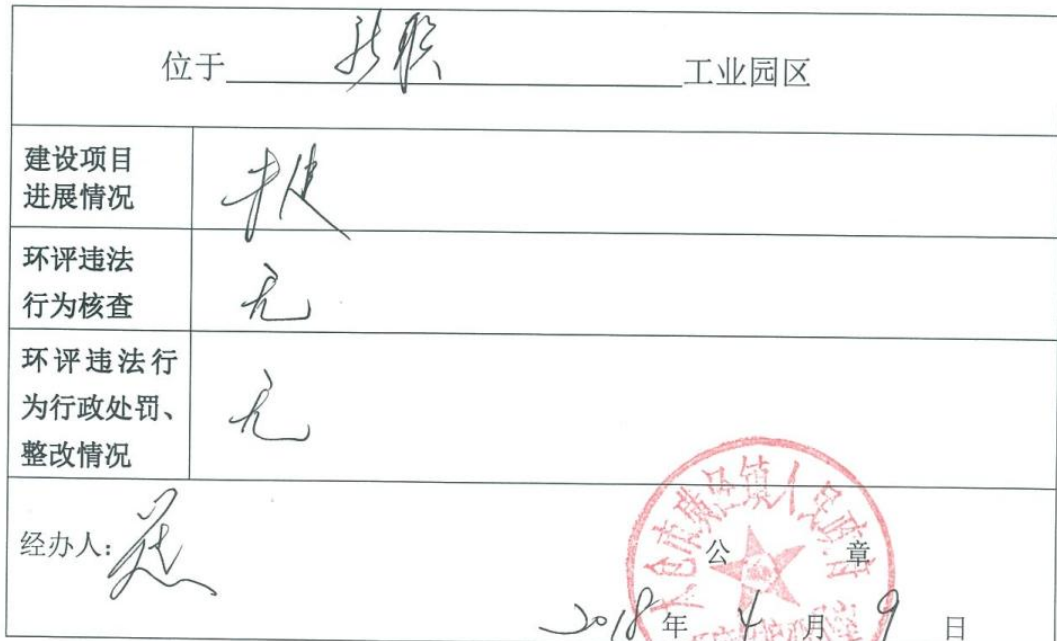 位于 工业园区
建设项目
进展情况
未建
环评违法
行为核查
无
环评违法行
为行政处罚、
整改情况
无
经办人:
太仓市璜泾镇人民政府
公 章
2018年 4 月 9 日